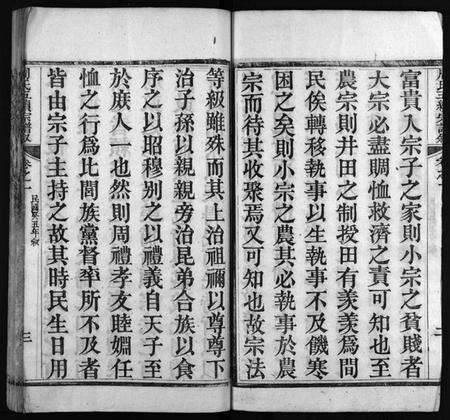 富貴人宗子之家則小宗之貧賤者
大宗必盡賙恤救濟之責可知也至
農宗則井田之制授田有羨羨爲閒
民俟轉移執事以生執事不及饑寒
困之矣則小宗之農其必執事於農
宗而待其收聚焉又可知也故宗法
等級雖殊而其上治祖禰以尊尊下
治子孫以親親旁治昆弟合族以食
序之以昭穆别之以禮義自天子至
於庶人一也然則周禮孝友睦婣任
恤之行爲比閭族黨督率所不及者
皆由宗子主持之故其時民生日用
三